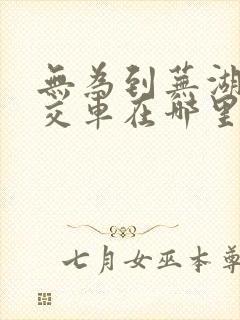 無為到蕪湖
交車在哪里
七月女巫本尊